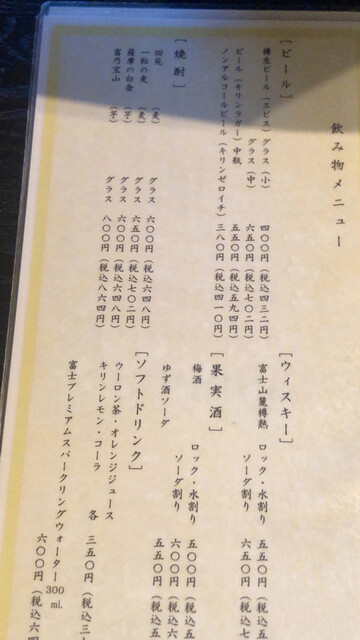 飲み物メニュー
［ビール］
樽生ビール（ヱビス）グラス（小） 四〇〇円（税込四三二円）
グラス（中） 六五〇円（税込七〇二円）
ビール（キリンラガー）中瓶 五五〇円（税込五九四円）
ノンアルコールビール（キリンゼロイチ） 三八〇円（税込四一〇円）
［焼酎］
四苑（麦） グラス 六〇〇円（税込六四八円）
一粒の麦（麦） グラス 六五〇円（税込七〇二円）
薩摩の白金（芋） グラス 六〇〇円（税込六四八円）
富乃宝山（芋） グラス 八〇〇円（税込八六四円）
［ウィスキー］
富士山麓樽熟 ロック・水割り 五五〇円（税込五
ソーダ割り 六五〇円（税込七
［果実酒］
梅酒 ロック・水割り 五〇〇円（税込五
ソーダ割り 六〇〇円（税込六
ゆず酒ソーダ 五五〇円（税込五
［ソフトドリンク］
ウーロン茶・オレンジジュース
キリンレモン・コーラ 各 三五〇円（税込三
富士プレミアムスパークリングウォーター 300ml. 六〇〇円（税込六四